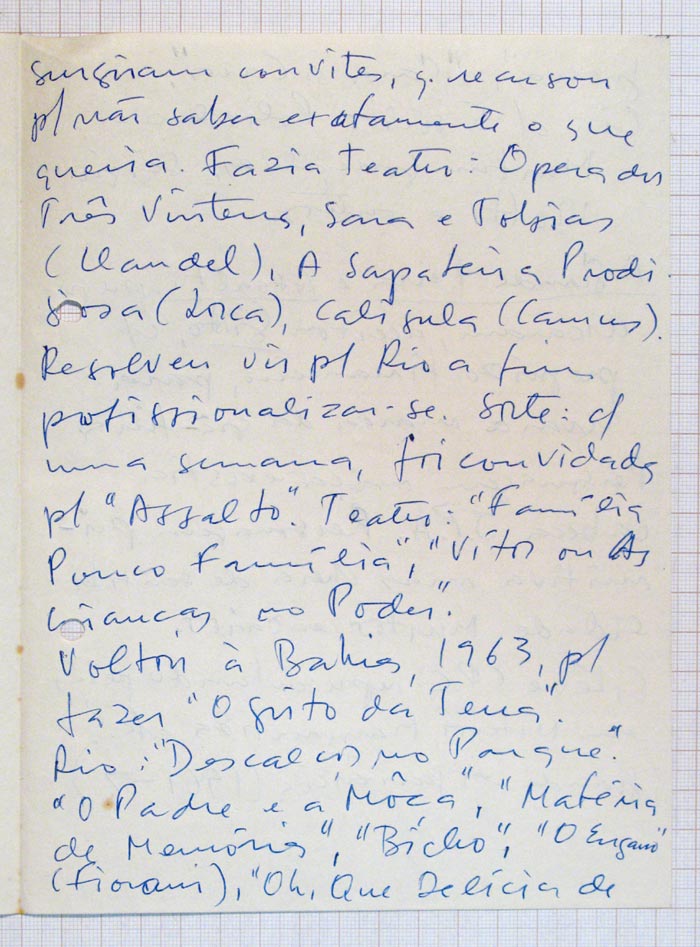 surgiram convites, q. recusou
p/ não saber exatamente o que
queria. Fazia Teatro: Opera dos
Três Vintens, Sara e Tobias
(Claudel), A Sapateira Prodi-
giosa (Lorca), Calígula (Camus).
Resolveu vir p/ Rio a fim
profissionalizar-se. Sorte: c/
uma semana, foi convidada
p/ "Assalto". Teatro: "Família
Pouco Família", "Vitor ou As
crianças no Poder."
Voltou à Bahia, 1963, p/
fazer "O grito da Terra".
Rio: "Descalços no Parque."
"O Padre e a Môça", "Matéria
de Memória", "Bicho", "O Engano"
(Fiorani), "Oh, Que Delícia de